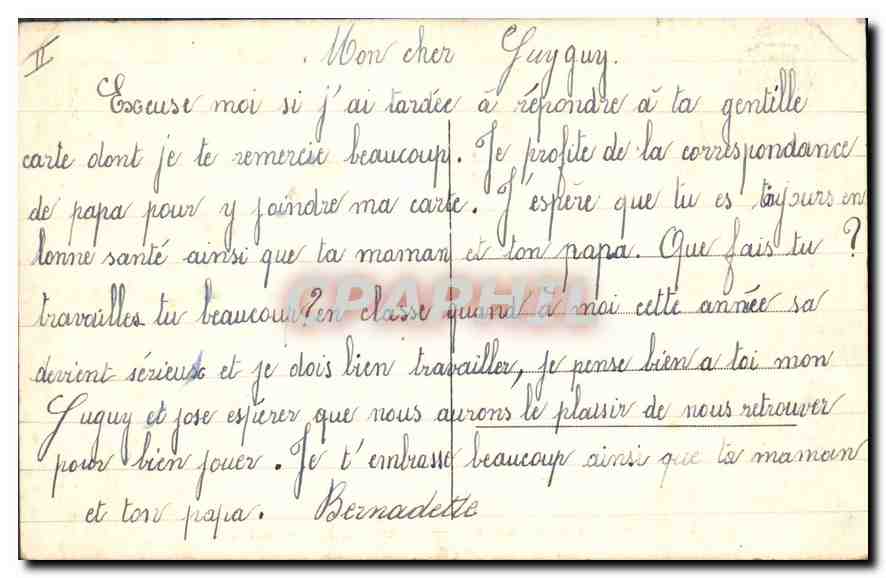 II
Mon cher Guyguy.
Excuse moi si j'ai tardée à répondre à ta gentille
carte dont je te remercie beaucoup. Je profite de la correspondance
de papa pour y joindre ma carte. J'espère que tu es toujours en
bonne santé ainsi que ta maman et ton papa. Que fais tu ?
travailles tu beaucoup? en classe quand à moi cette année sa
devient sérieux et je dois bien travailler, je pense bien a toi mon
Guguy et jose espérer que nous aurons le plaisir de nous retrouver
pour bien jouer. Je t'embrasse beaucoup ainsi que ta maman
et ton papa. Bernadette
CPARHIL